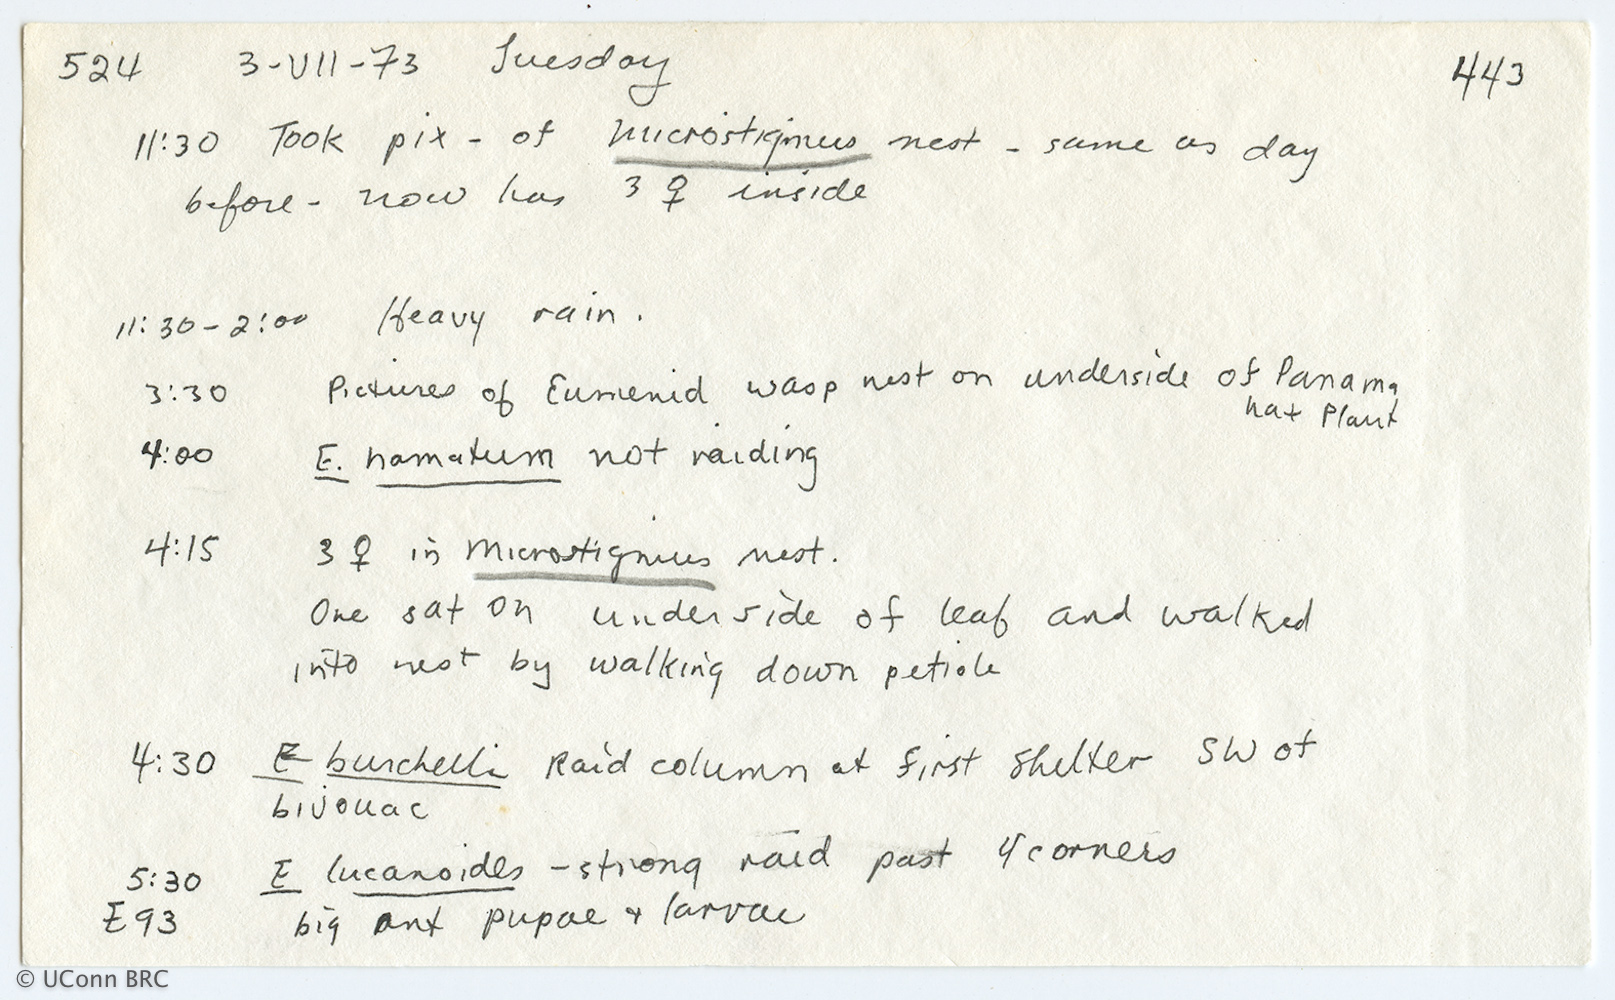 524 3-VII-73 Tuesday 443
11:30 Took pix - of Microstigmus nest - same as day
before - now has 3 ♀ inside
11:30-2:00 Heavy rain.
3:30 Pictures of Eumenid wasp nest on underside of Panama
hat Plant
4:00 E. hamatum not raiding
4:15 3 ♀ in Microstigmus nest.
One sat on underside of leaf and walked
into nest by walking down petiole
4:30 E burchelli Raid column at first shelter SW of
bivouac
5:30 E lucanoides - strong raid past 4 corners
E93 big ant pupae + larvae
© UConn BRC